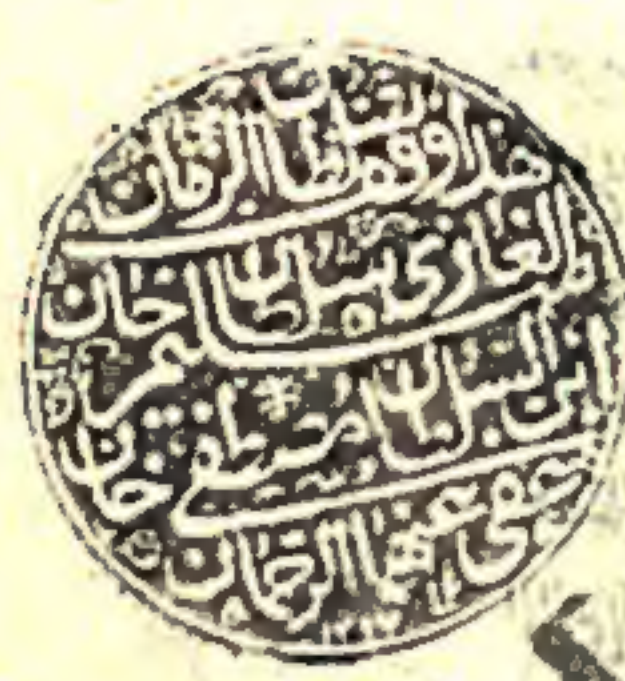 هذا وقف سلطان الزمان
الغازى سلطان سليم خان
ابن السلطان مصطفى خان
عفى عنهما الرحمان
١٢١٧